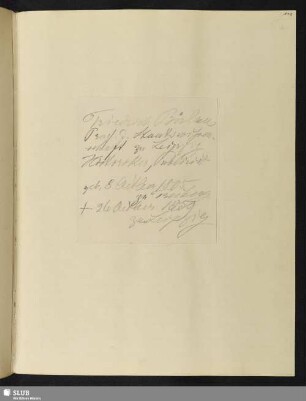 Friedrich Bülau,
Prof. d. Staatswissen-
schaft zu Leipzig
Historiker, Publicist
geb. 8 Octbr 1805
zu
+ 26 Octbr 1859
zu Leipzig
SLUB